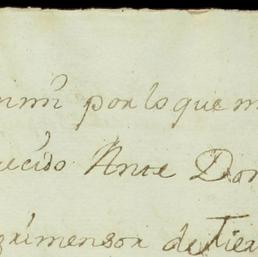 por lo que m
ecido Ante Don
grimensor de Tier